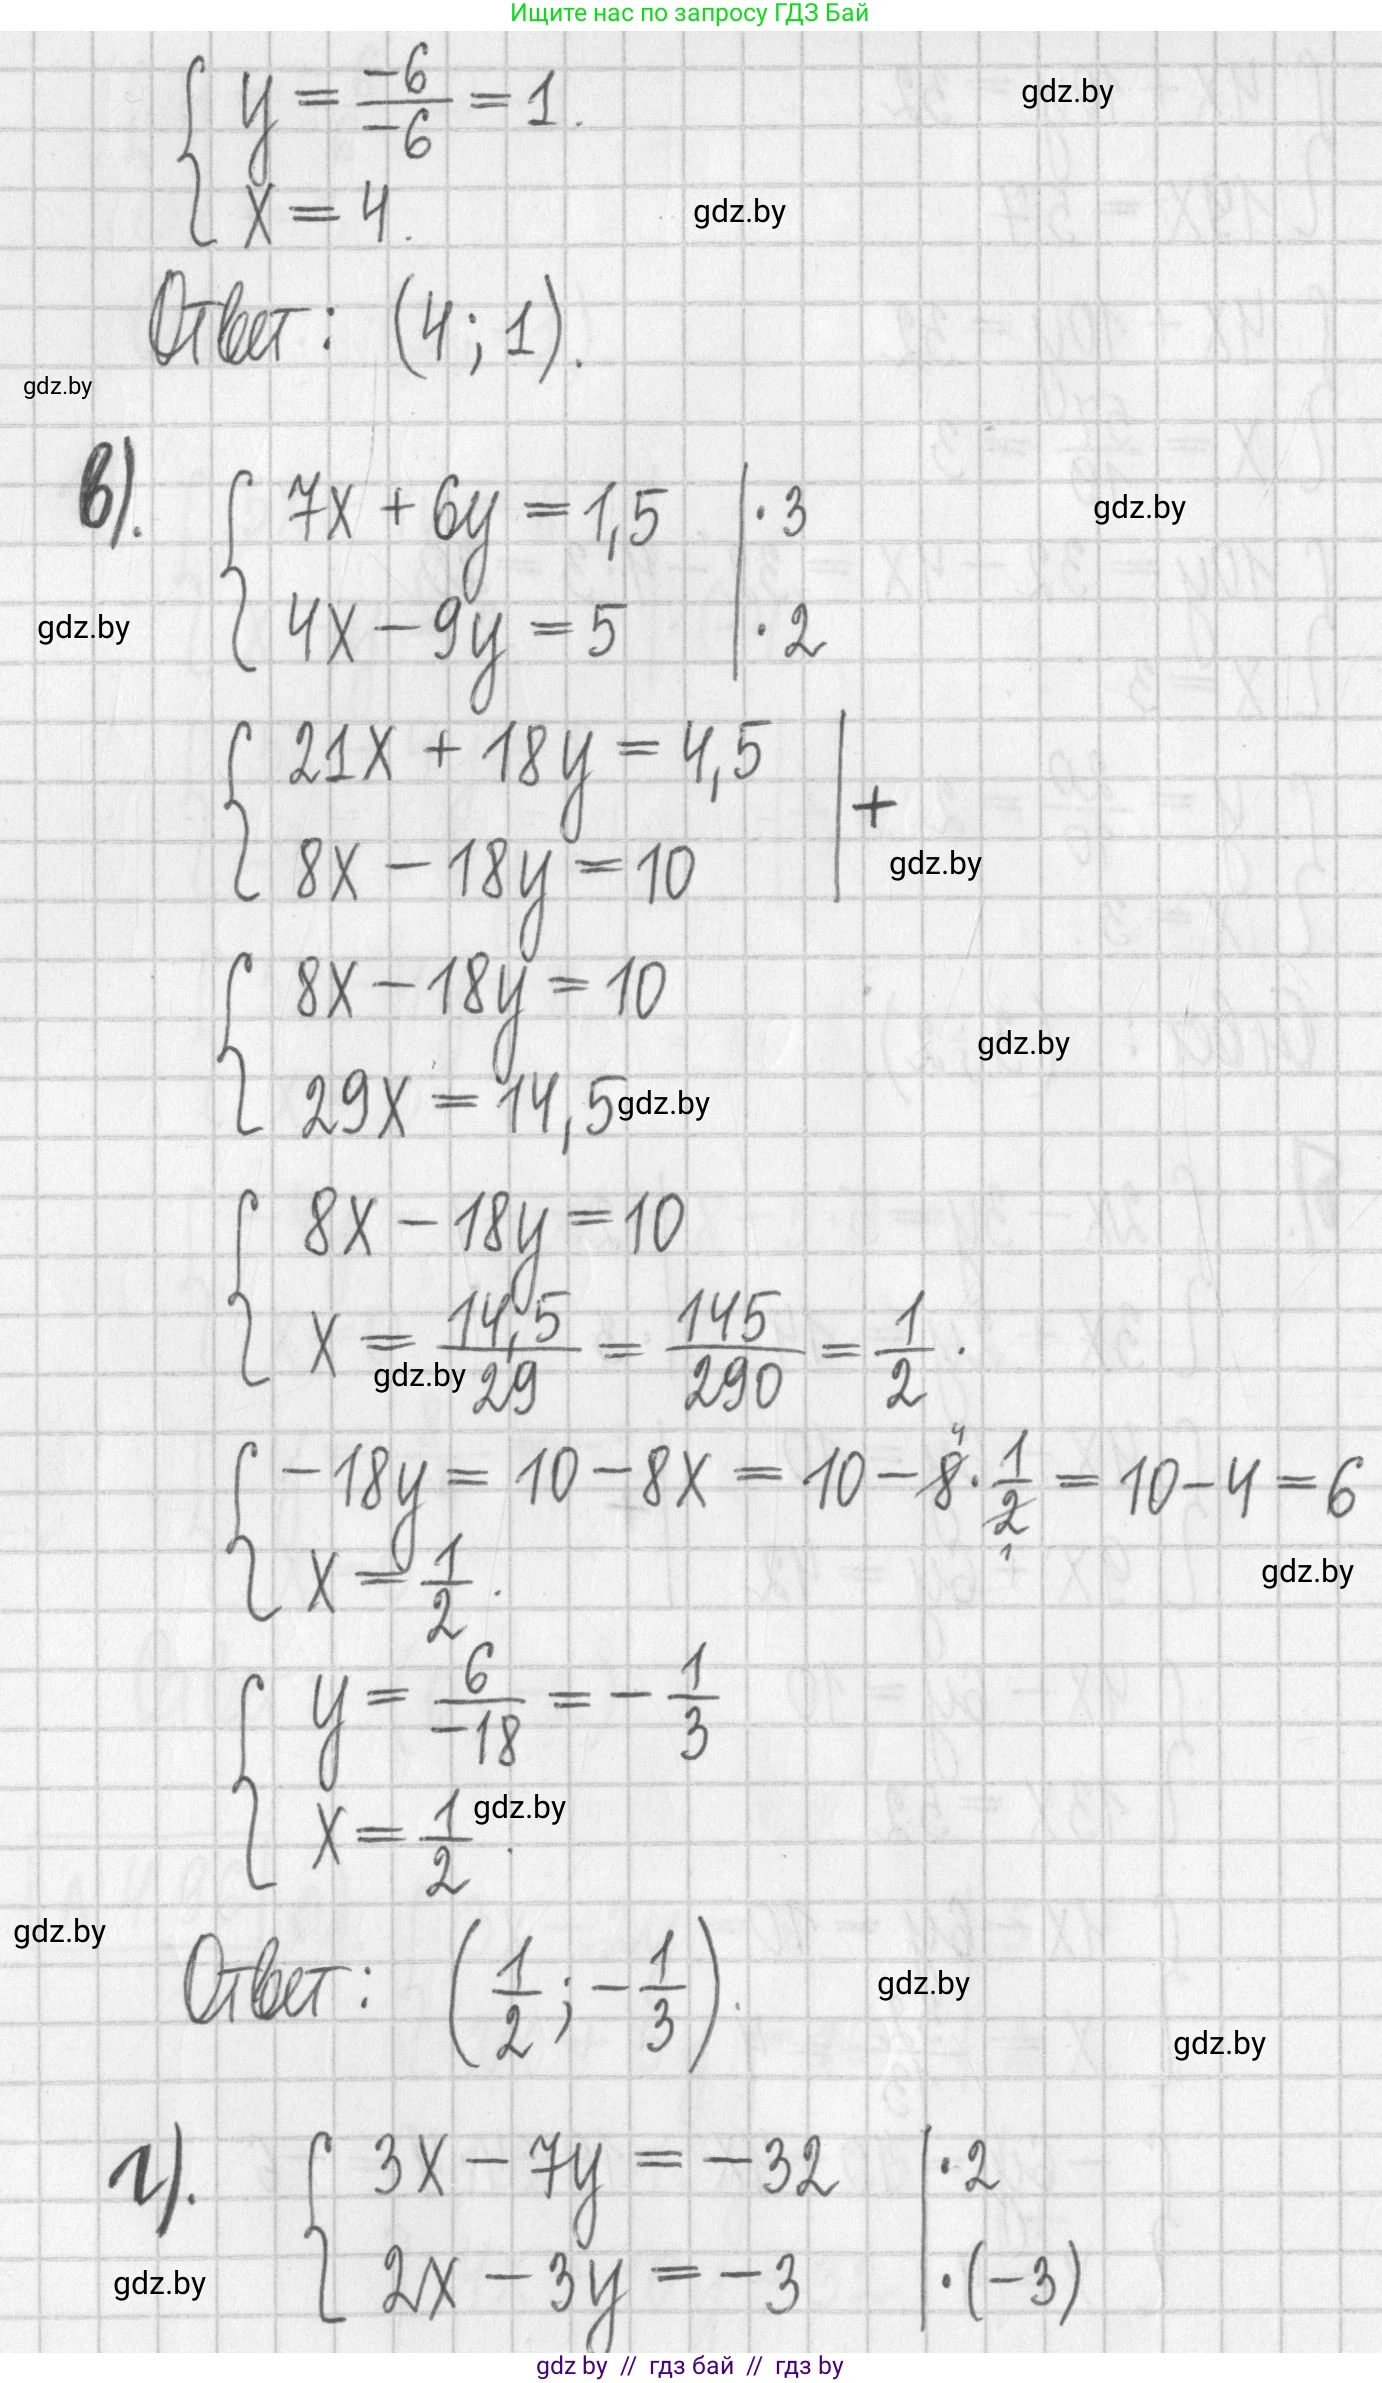 Ищите нас по запросу ГДЗ Бай
y = -6/-6 = 1.
gdz.by
x = 4.
gdz.by
Ответ: (4; 1).
gdz.by
в). 7x + 6y = 1,5 | · 3
gdz.by
4x - 9y = 5 | · 2
gdz.by
21x + 18y = 4,5 | +
8x - 18y = 10
gdz.by
8x - 18y = 10
gdz.by
29x = 14,5
gdz.by
8x - 18y = 10
x = 14,5/29 = 145/290 = 1/2.
gdz.by
-18y = 10 - 8x = 10 - 8 · 1/2 = 10 - 4 = 6
4
1
gdz.by
x = 1/2.
y = 6/-18 = -1/3
x = 1/2.
gdz.by
gdz.by
Ответ: (1/2; -1/3).
gdz.by
gdz.by
г). 3x - 7y = -32 | · 2
2x - 3y = -3 | · (-3)
gdz.by
gdz by // гдз бай // гдз by